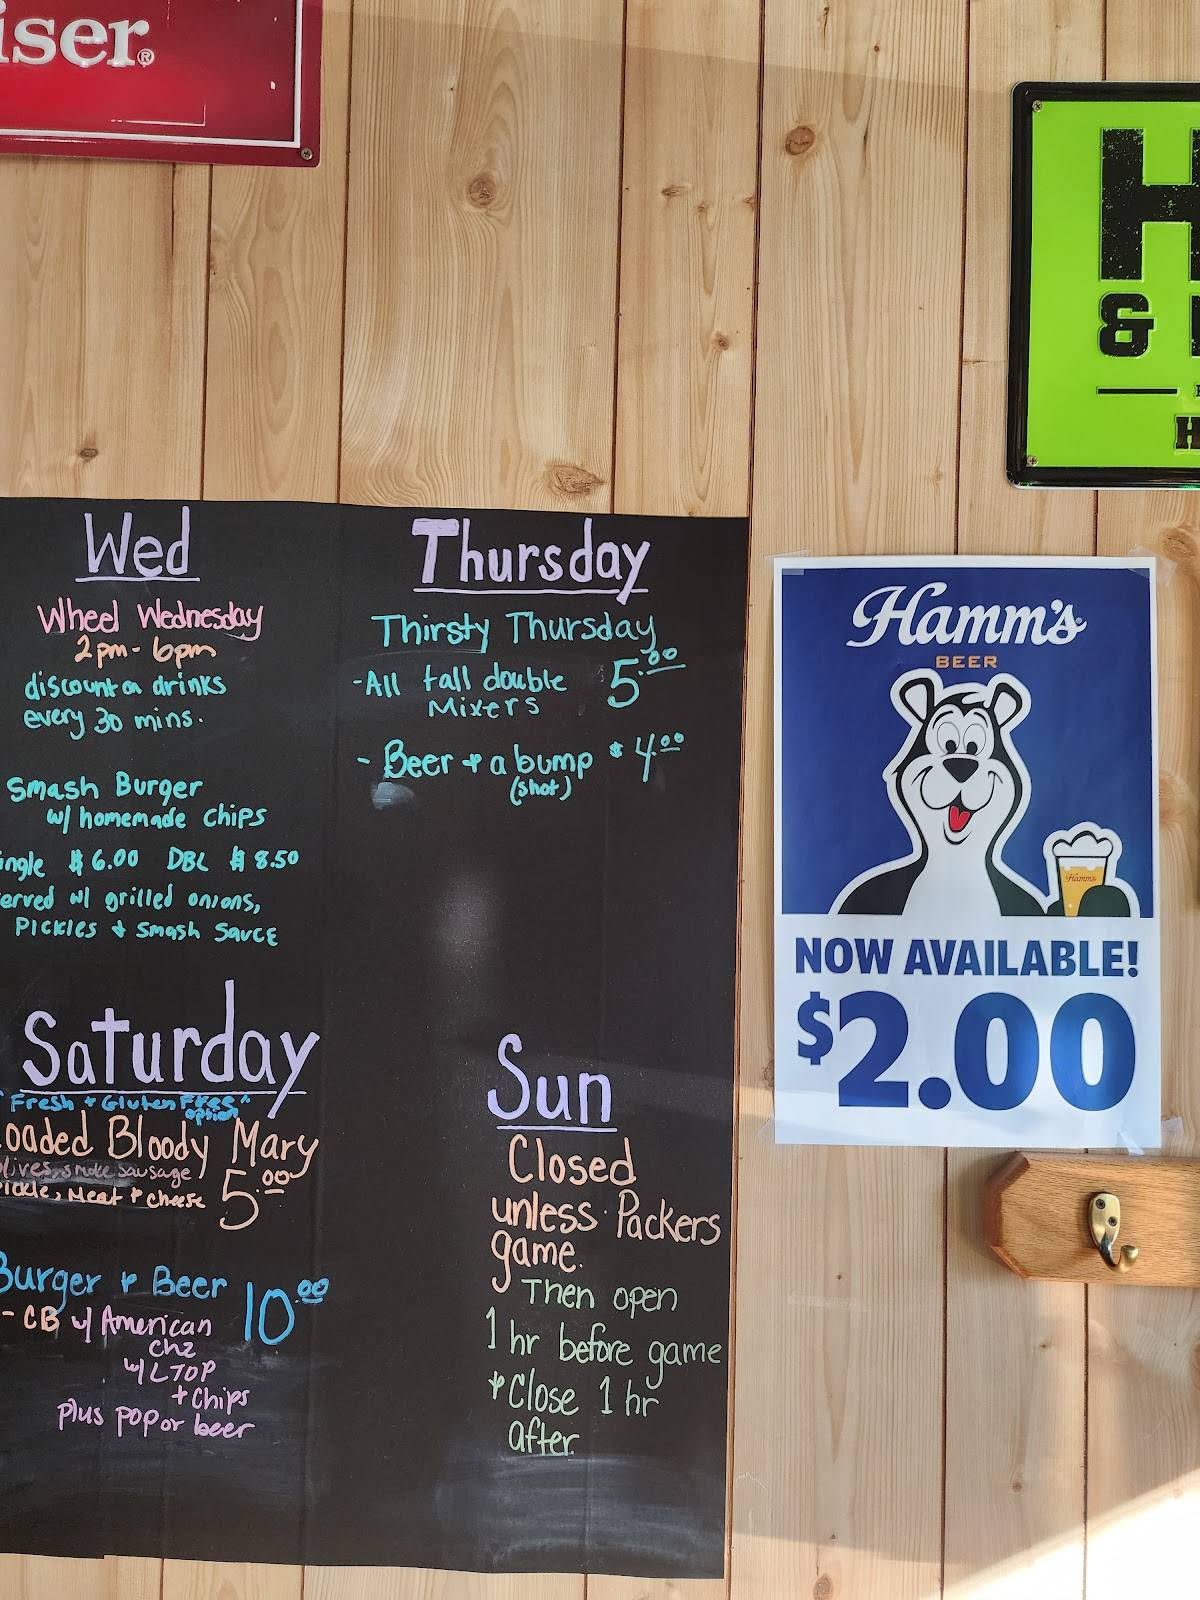 iser®
H
&
H
Wed
Wheel Wednesday
2pm - 6pm
discount on drinks
every 30 mins.
Smash Burger
w/ homemade chips
ingle $6.00 DBL $8.50
erved w/ grilled onions,
Pickles & Smash Sauce
Thursday
Thirsty Thursday
-All tall double 5.00
Mixers
- Beer & a bump $4.00
(shot)
Saturday
"Fresh & Gluten Free"
option
oaded Bloody Mary
lives, smoke sausage
ickle, Meat & cheese 5.00
Burger & Beer 10.00
- CB w/ American
chz
w/ LTOP
+ Chips
plus pop or beer
Sun
Closed
unless Packers
game.
Then open
1 hr before game
& Close 1 hr
after.
Hamm's
BEER
Hamm's
NOW AVAILABLE!
$2.00